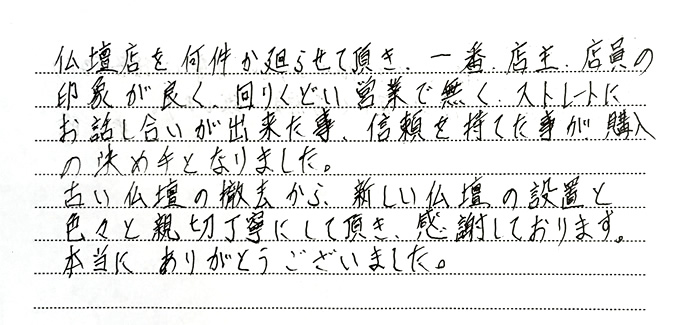 仏壇店を何件か廻らせて頂き、一番、店主、店員の
印象が良く、回りくどい営業で無く、ストレートに
お話し合いが出来た事、信頼を持てた事が、購入
の決め手となりました。
古い仏壇の撤去から、新しい仏壇の設置と
色々と親切丁寧にして頂き、感謝しております。
本当に ありがとうございました。